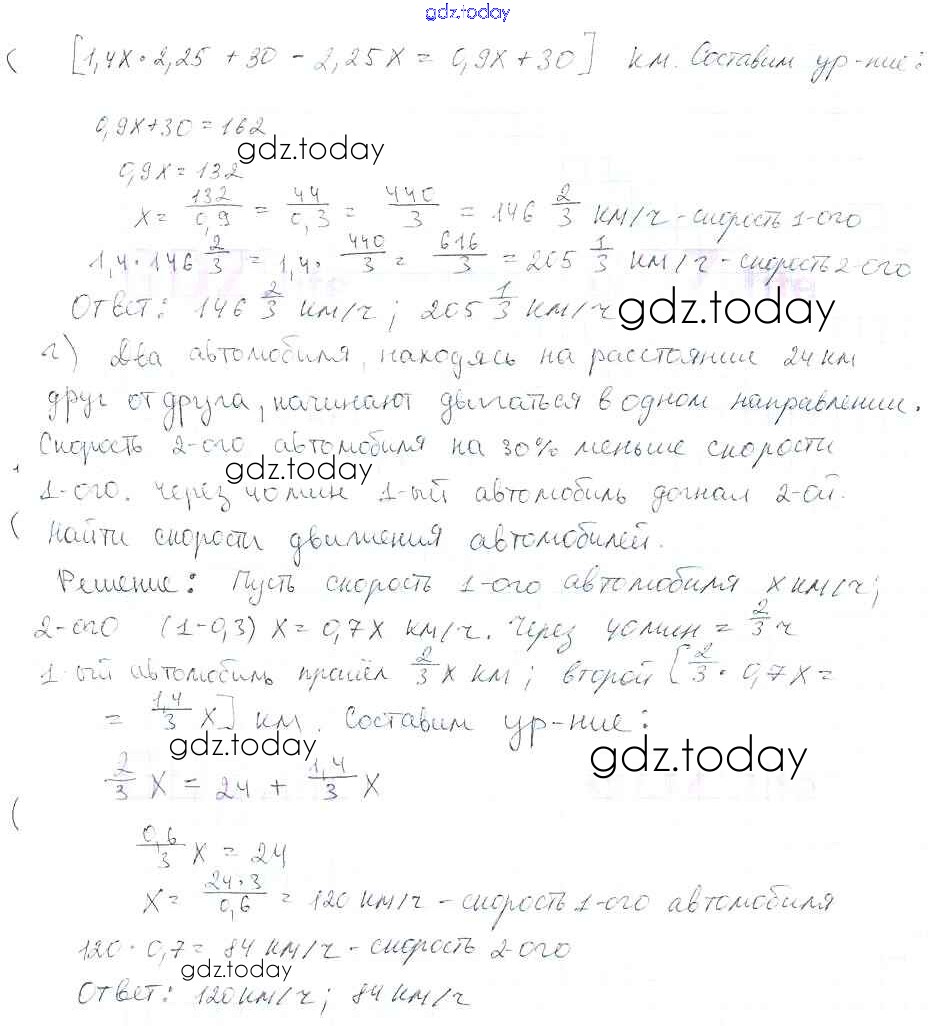 gdz.today
[1,4x·2,25 + 30 - 2,25x = 0,9x + 30] км. Составим ур-ние:
0,9x+30 = 162
gdz.today
0,9x = 132
x = 132/0,9 = 44/0,3 = 440/3 = 146 2/3 км/ч - скорость 1-ого
1,4·146 2/3 = 1,4· 440/3 = 616/3 = 205 1/3 км/ч - скорость 2-ого
Ответ: 146 2/3 км/ч; 205 1/3 км/ч
gdz.today
г) Два автомобиля, находясь на расстоянии 24 км
друг от друга, начинают двигаться в одном направлении.
Скорость 2-ого автомобиля на 30% меньше скорости
gdz.today
1-ого. Через 40 мин 1-ый автомобиль догнал 2-ой.
Найти скорости движения автомобилей.
Решение: Пусть скорость 1-ого автомобиля x км/ч;
2-ого (1-0,3) x = 0,7x км/ч. Через 40 мин = 2/3 ч
1-ый автомобиль прошёл 2/3 x км; второй [2/3 · 0,7x =
= 1,4/3 x] км. Составим ур-ние:
gdz.today
gdz.today
2/3 x = 24 + 1,4/3 x
0,6/3 x = 24
x = 24·3/0,6 = 120 км/ч - скорость 1-ого автомобиля
120 · 0,7 = 84 км/ч - скорость 2-ого
gdz.today
Ответ: 120 км/ч; 84 км/ч